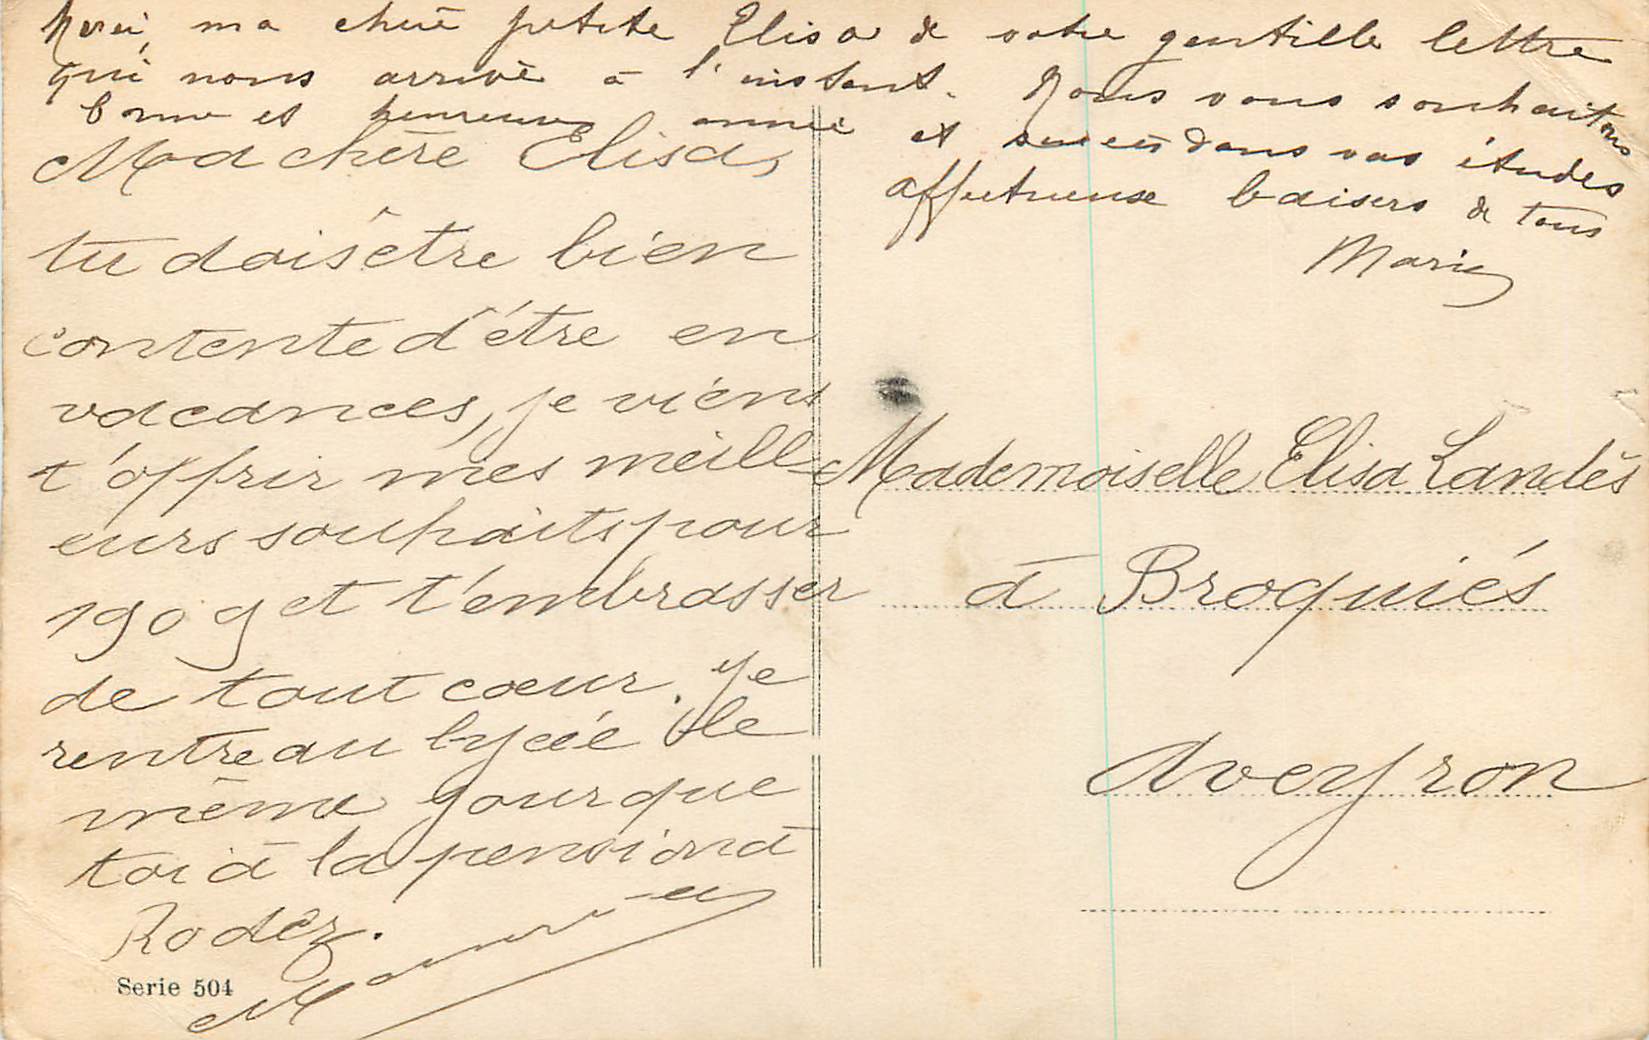 Merci, ma chère petite Elisa de votre gentille lettre
qui nous arrive à l'instant. Nous vous souhaitons
bonne et heureuse année et succès dans vos études
affectueuse baisers de tous
Marie
Ma chère Elisa,
tu dois être bien
contente d'être en
vacances, je viens
t'offrir mes meill
eurs souhaits pour
1909 et t'embrasser
de tout cœur. Je
rentre au lycée le
même jour que
toi à la pension à
Rodez.
Serie 504
Mademoiselle Elisa Landès
à Broquiés
Aveyron